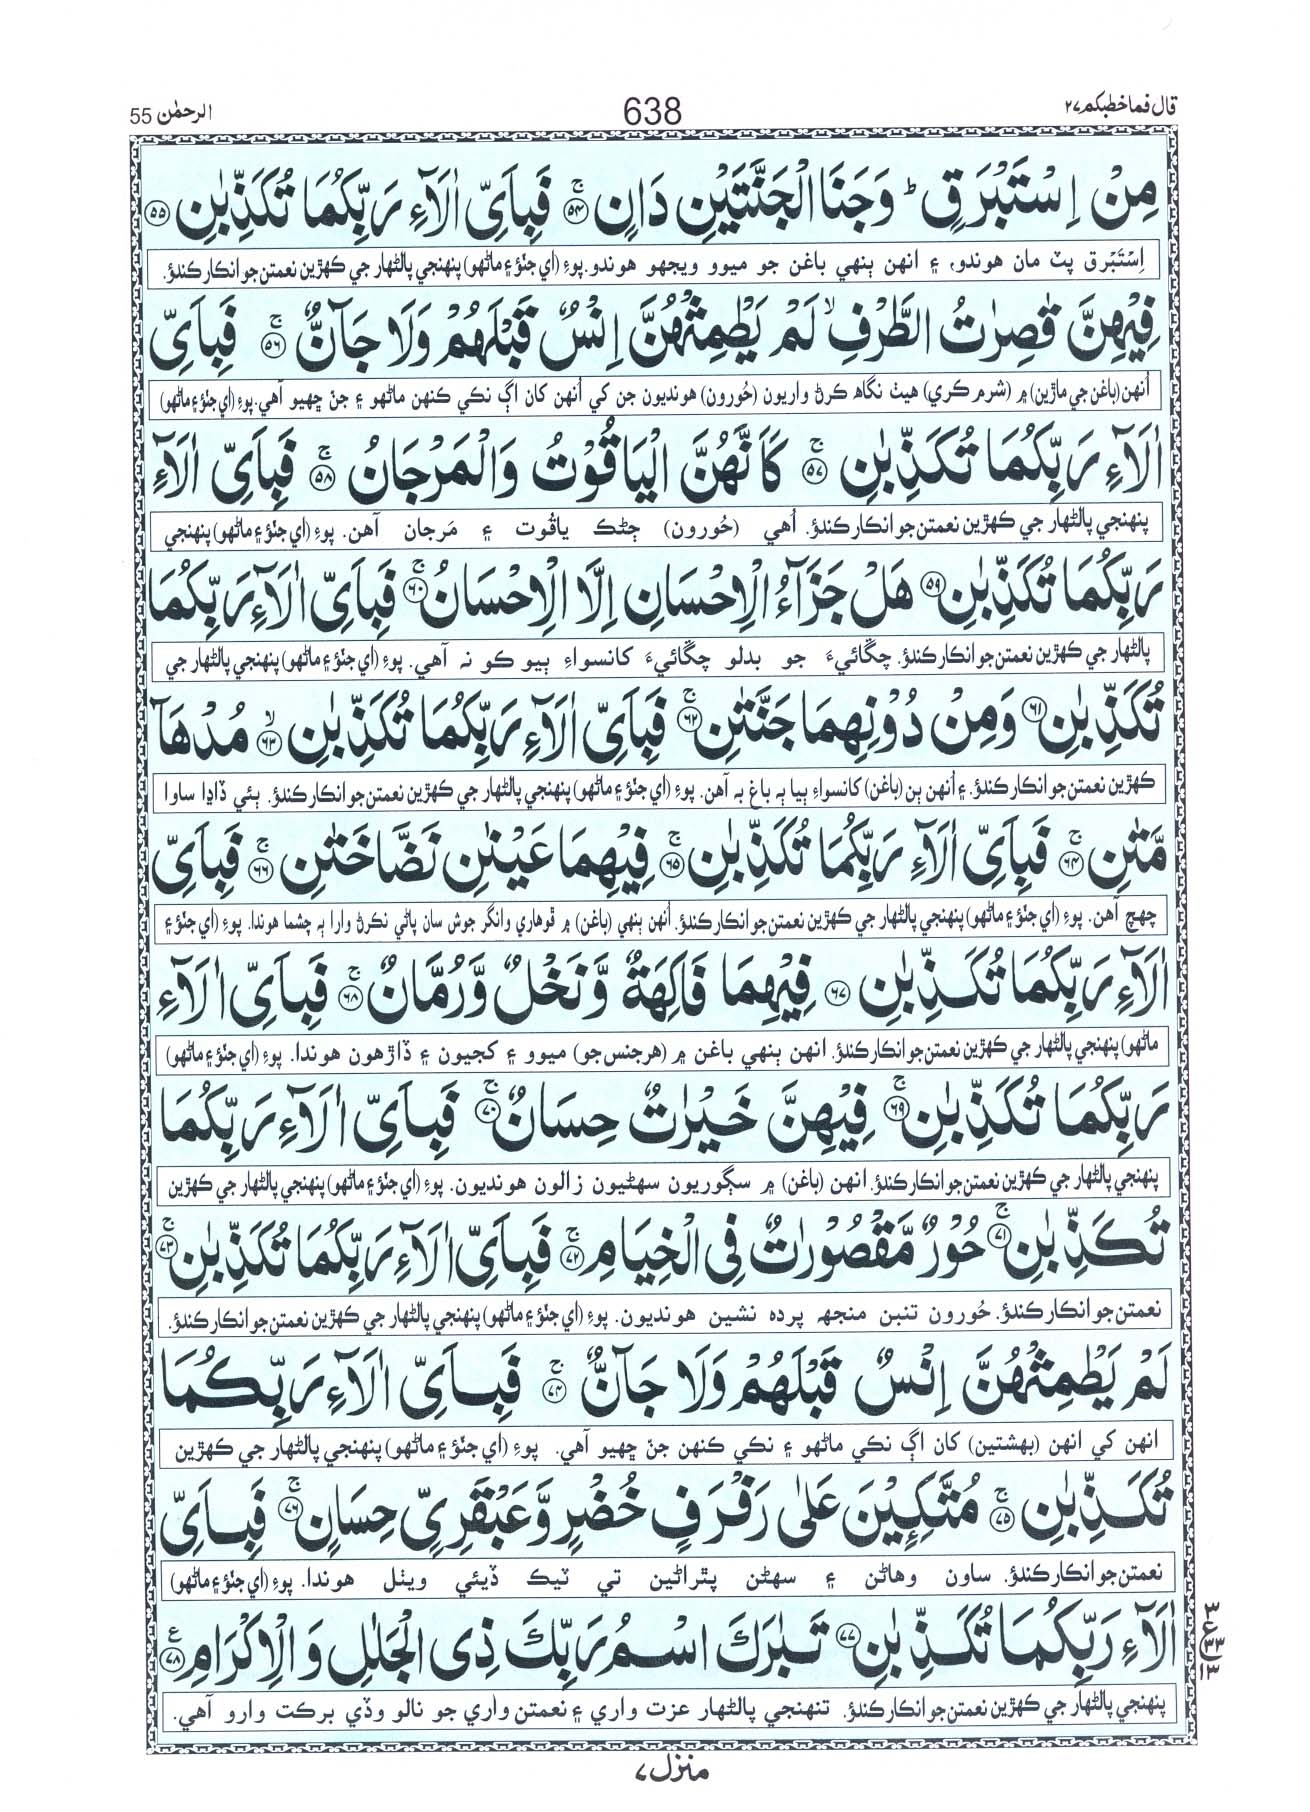 قال فما خطبكم ٢٧
638
الرحمٰن 55
مِنْ اِسْتَبْرَقٍ ؕ وَجَنَا الْجَنَّتَيْنِ دَانٍ ۚ ﴿٥٤﴾ فَبِاَيِّ اٰلَآءِ رَبِّكُمَا تُكَذِّبٰنِ ﴿٥٥﴾
اِسْتَبْرَق پٽ مان هوندو، ۽ انهن ٻنهي باغن جو ميوو ويجهو هوندو. پوءِ (اي جنّؤ ۽ ماڻهو) پنهنجي پالڻهار جي ڪهڙين نعمتن جو انڪار ڪندؤ.
فِيْهِنَّ قٰصِرٰتُ الطَّرْفِ ۙ لَمْ يَطْمِثْهُنَّ اِنْسٌ قَبْلَهُمْ وَلَا جَآنٌّ ۚ ﴿٥٦﴾ فَبِاَيِّ
اُنهن (باغن جي ماڙين) ۾ (شرم ڪري) هيٺ نگاهه ڪرڻ واريون (حُورون) هونديون جن کي اُنهن کان اڳ نڪي ڪنهن ماڻهو ۽ جنّ ڇهيو آهي. پوءِ (اي جنّؤ ۽ ماڻهو)
اٰلَآءِ رَبِّكُمَا تُكَذِّبٰنِ ۚ ﴿٥٧﴾ كَاَنَّهُنَّ الْيَاقُوْتُ وَالْمَرْجَانُ ۚ ﴿٥٨﴾ فَبِاَيِّ اٰلَآءِ
پنهنجي پالڻهار جي ڪهڙين نعمتن جو انڪار ڪندؤ. اُهي (حُورون) ڄڻڪ ياقُوت ۽ مَرجان آهن. پوءِ (اي جنّؤ ۽ ماڻهو) پنهنجي
رَبِّكُمَا تُكَذِّبٰنِ ﴿٥٩﴾ هَلْ جَزَآءُ الْاِحْسَانِ اِلَّا الْاِحْسَانُ ۚ ﴿٦٠﴾ فَبِاَيِّ اٰلَآءِ رَبِّكُمَا
پالڻهار جي ڪهڙين نعمتن جو انڪار ڪندؤ. چڱائيءَ جو بدلو چڱائيءَ کانسواءِ ٻيو ڪو نہ آهي. پوءِ (اي جنّؤ ۽ ماڻهو) پنهنجي پالڻهار جي
تُكَذِّبٰنِ ﴿٦١﴾ وَمِنْ دُوْنِهِمَا جَنَّتٰنِ ۚ ﴿٦٢﴾ فَبِاَيِّ اٰلَآءِ رَبِّكُمَا تُكَذِّبٰنِ ۙ ﴿٦٣﴾ مُدْهَآ
ڪهڙين نعمتن جو انڪار ڪندؤ. ۽ اُنهن ٻن (باغن) کانسواءِ ٻيا ٻہ باغ بہ آهن. پوءِ (اي جنّؤ ۽ ماڻهو) پنهنجي پالڻهار جي ڪهڙين نعمتن جو انڪار ڪندؤ. ٻئي ڏاڍا ساوا
مَّتٰنِ ۚ ﴿٦٤﴾ فَبِاَيِّ اٰلَآءِ رَبِّكُمَا تُكَذِّبٰنِ ۚ ﴿٦٥﴾ فِيْهِمَا عَيْنٰنِ نَضَّاخَتٰنِ ۚ ﴿٦٦﴾ فَبِاَيِّ
چهچ آهن. پوءِ (اي جنّؤ ۽ ماڻهو) پنهنجي پالڻهار جي ڪهڙين نعمتن جو انڪار ڪندؤ. اُنهن ٻنهي (باغن) ۾ ڦوهاري وانگر جوش سان پاڻي نڪرڻ وارا ٻہ چشما هوندا. پوءِ (اي جنّؤ ۽
اٰلَآءِ رَبِّكُمَا تُكَذِّبٰنِ ﴿٦٧﴾ فِيْهِمَا فَاكِهَةٌ وَّنَخْلٌ وَّرُمَّانٌ ۚ ﴿٦٨﴾ فَبِاَيِّ اٰلَآءِ
ماڻهو) پنهنجي پالڻهار جي ڪهڙين نعمتن جو انڪار ڪندؤ. انهن ٻنهي باغن ۾ (هر جنس جو) ميوو ۽ کجيون ۽ ڏاڙهون هوندا. پوءِ (اي جنّؤ ۽ ماڻهو)
رَبِّكُمَا تُكَذِّبٰنِ ۚ ﴿٦٩﴾ فِيْهِنَّ خَيْرٰتٌ حِسَانٌ ۚ ﴿٧٠﴾ فَبِاَيِّ اٰلَآءِ رَبِّكُمَا
پنهنجي پالڻهار جي ڪهڙين نعمتن جو انڪار ڪندؤ. انهن (باغن) ۾ سڳوريون سهڻيون زالون هونديون. پوءِ (اي جنّؤ ۽ ماڻهو) پنهنجي پالڻهار جي ڪهڙين
تُكَذِّبٰنِ ۚ ﴿٧١﴾ حُوْرٌ مَّقْصُوْرٰتٌ فِي الْخِيَامِ ۚ ﴿٧٢﴾ فَبِاَيِّ اٰلَآءِ رَبِّكُمَا تُكَذِّبٰنِ ۚ ﴿٧٣﴾
نعمتن جو انڪار ڪندؤ. حُورون تنبن منجهہ پرده نشين هونديون. پوءِ (اي جنّؤ ۽ ماڻهو) پنهنجي پالڻهار جي ڪهڙين نعمتن جو انڪار ڪندؤ.
لَمْ يَطْمِثْهُنَّ اِنْسٌ قَبْلَهُمْ وَلَا جَآنٌّ ۚ ﴿٧٤﴾ فَبِاَيِّ اٰلَآءِ رَبِّكُمَا
انهن کي انهن (بهشتين) کان اڳ نڪي ماڻهو ۽ نڪي ڪنهن جنّ ڇهيو آهي. پوءِ (اي جنّؤ ۽ ماڻهو) پنهنجي پالڻهار جي ڪهڙين
تُكَذِّبٰنِ ۚ ﴿٧٥﴾ مُتَّكِـِٕيْنَ عَلٰى رَفْرَفٍ خُضْرٍ وَّعَبْقَرِيٍّ حِسَانٍ ۚ ﴿٧٦﴾ فَبِاَيِّ
نعمتن جو انڪار ڪندؤ. ساون وهاڻن ۽ سهڻن پٿراڻين تي ٽيڪ ڏيئي ويٺل هوندا. پوءِ (اي جنّؤ ۽ ماڻهو)
اٰلَآءِ رَبِّكُمَا تُكَذِّبٰنِ ﴿٧٧﴾ تَبٰرَكَ اسْمُ رَبِّكَ ذِي الْجَلٰلِ وَالْاِكْرَامِ ﴿٧٨﴾ ع
پنهنجي پالڻهار جي ڪهڙين نعمتن جو انڪار ڪندؤ. تنهنجي پالڻهار عزت واري ۽ نعمتن واري جو نالو وڏي برڪت وارو آهي.
منزل ٧